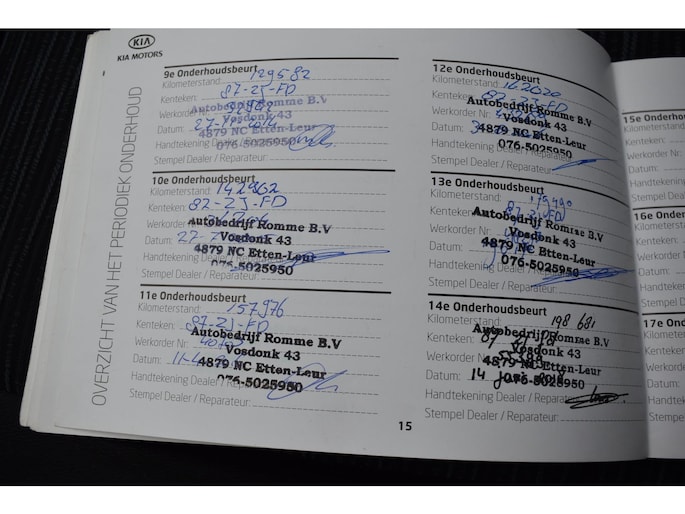 KIA
KIA MOTORS
OVERZICHT VAN HET PERIODIEK ONDERHOUD
9e Onderhoudsbeurt
Kilometerstand: 129582
Kenteken: 87-ZJ-FD
Werkorder Nr:
Datum:
Handtekening Dealer / Reparateur:
Stempel Dealer / Reparateur:
Autobedrijf Romme B.V
Vosdonk 43
4879 NC Etten-Leur
076-5025950
10e Onderhoudsbeurt
Kilometerstand: 142962
Kenteken: 87-ZJ-FD
Werkorder Nr:
Datum:
Handtekening Dealer / Reparateur:
Stempel Dealer / Reparateur:
Autobedrijf Romme B.V
Vosdonk 43
4879 NC Etten-Leur
076-5025950
11e Onderhoudsbeurt
Kilometerstand: 157976
Kenteken: 87-ZJ-FD
Werkorder Nr:
Datum:
Handtekening Dealer / Reparateur:
Stempel Dealer / Reparateur:
Autobedrijf Romme B.V
Vosdonk 43
4879 NC Etten-Leur
076-5025950
12e Onderhoudsbeurt
Kilometerstand: 162020
Kenteken: 87-ZJ-FD
Werkorder Nr:
Datum:
Handtekening Dealer / Reparateur:
Stempel Dealer / Reparateur:
Autobedrijf Romme B.V
Vosdonk 43
4879 NC Etten-Leur
076-5025950
13e Onderhoudsbeurt
Kilometerstand: 175490
Kenteken: 87-ZJ-FD
Werkorder Nr:
Datum:
Handtekening Dealer / Reparateur:
Stempel Dealer / Reparateur:
Autobedrijf Romme B.V
Vosdonk 43
4879 NC Etten-Leur
076-5025950
14e Onderhoudsbeurt
Kilometerstand: 198 681
Kenteken: 87
Werkorder Nr:
Datum: 14
Handtekening Dealer / Reparateur:
Stempel Dealer / Reparateur:
Autobedrijf Romme B.V
Vosdonk 43
4879 NC Etten-Leur
076-5025950
15
15e Onderhoud
Kilometerstand:
Kenteken:
Werkorder Nr:
Datum:
Handtekening
Stempel Deal
16e Onde
Kilometers
Kenteken:
Werkorde
Datum:
Handteke
Stempel
17e On
Kilomet
Kentek
Werko
Datum
Hand
Stem